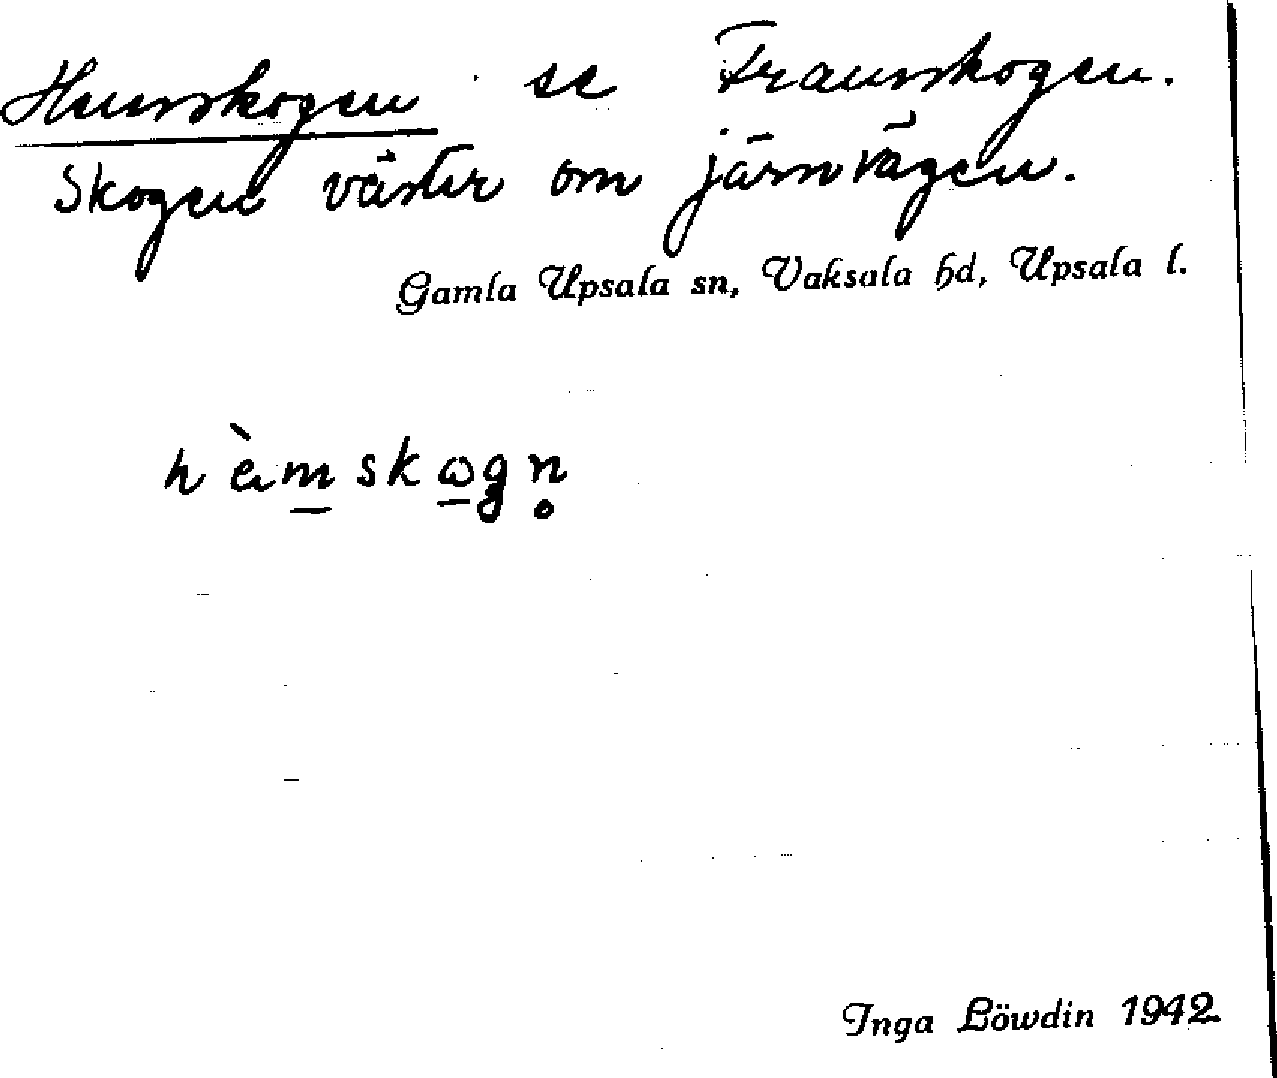 Hemskogen se Framskogen.
Skogen väster om järnvägen.
Gamla Upsala sn, Vaksala hd, Upsala l.
hèmskωgn̥
Inga Löwdin 1942